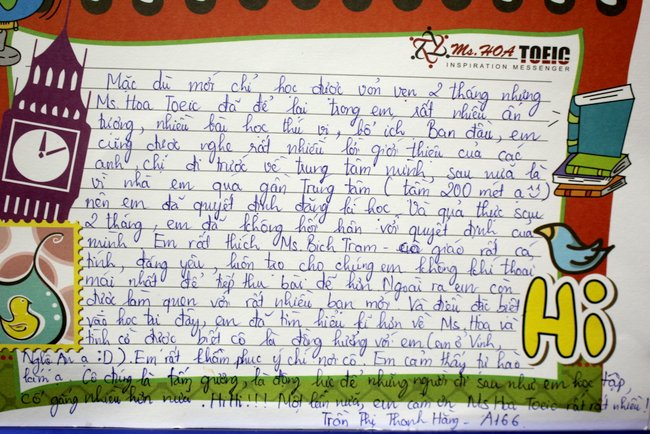 Ms. HOA TOEIC
INSPIRATION MESSENGER
Mặc dù mới chỉ học được vỏn vẹn 2 tháng nhưng
Ms. Hoa Toeic đã để lại trong em rất nhiều ấn
tượng, nhiều bài học thú vị, bổ ích. Ban đầu, em
cũng được nghe rất nhiều lời giới thiệu của các
anh chị đi trước về trung tâm mình, sau nữa là
vì nhà em qua gần Trung tâm (tầm 200 mét ạ
nên em đã quyết định đăng kí học. Và quả thực sau
2 tháng, em đã không hối hận với quyết định của
mình. Em rất thích Ms. Bích Trâm - cô giáo rất cá
tính, đáng yêu, luôn tạo cho chúng em không khí thoải
mái nhất để tiếp thu bài dễ hơn. Ngoài ra em còn
được làm quen với rất nhiều bạn mới. Và điều đặc biệt
vào học tại đây, em đã tìm hiểu kĩ hơn về Ms. Hoa và
tình cờ được biết cô là đồng hương với em (em ở Vinh,
Nghệ An ạ :D). Em rất khâm phục ý chí nơi cô. Em cảm thấy tự hào
lắm ạ. Cô đúng là tấm gương, là động lực để những người đi sau như em học tập,
cố gắng nhiều hơn nữa. Hihi!!! Một lần nữa, em cảm ơn Ms Hoa Toeic rất rất nhiều!
Trần Thị Thanh Hằng - A166.
Hi